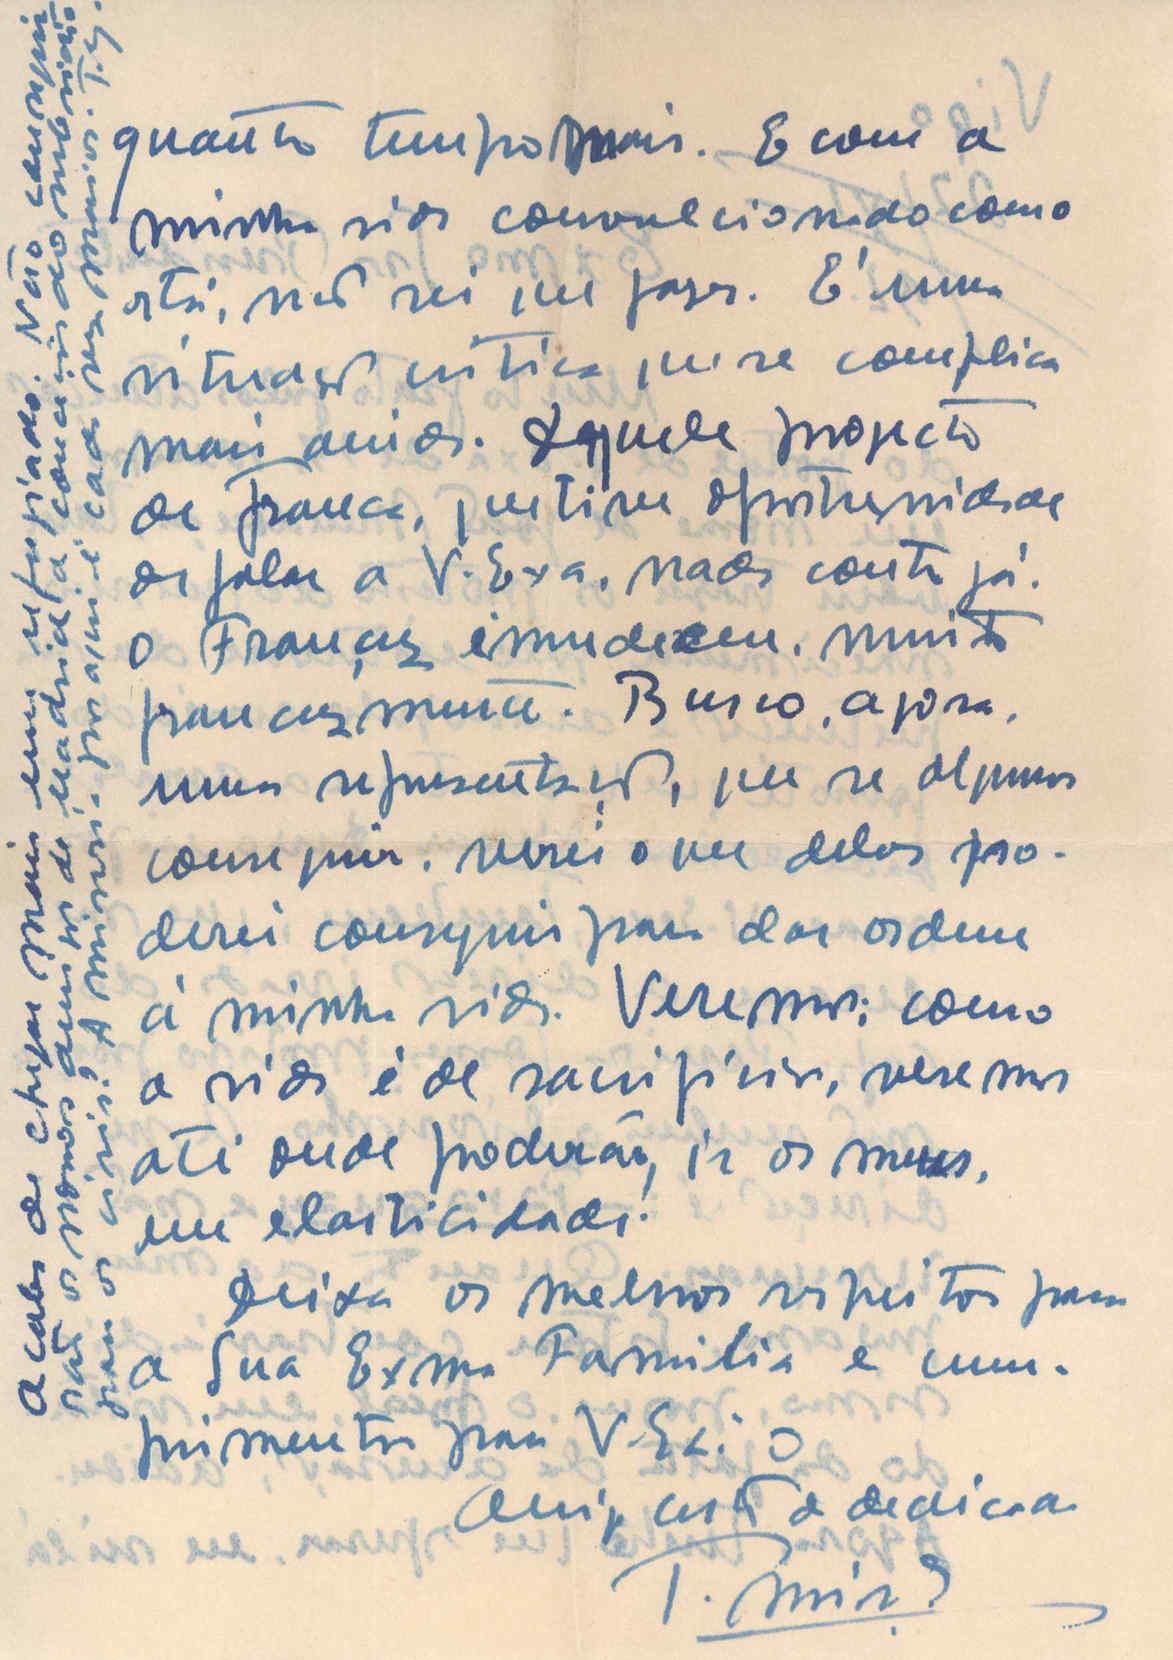 quanto tempo mais. E com a
minha vida convulcionada como
está, não sei que fazer. É uma
situação critica que se complica
mais ainda. Daquele projecto
de França, que tive oportunidade
de falar a V. Exa, nada conta já.
O Françez emudeceu, muito
francezmente. Busco, agora,
umas representações, que se algumas
conseguir, verei o que delas po-
derei conseguir para dar ordem
á minha vida. Veremos; como
a vida é de sacrificios, veremos
até onde poderão, ir os meus,
em elasticidade!
Deixa os melhores respeitos para
a Sua Exma Familia e cum-
primentos para V. Exa. o
Amigo certo e dedicado
T.
Acaba de chegar mais um refugiado. Não consegui
não os nomes de Madrid a
para os civis? A miseria por aqui é cada vez maior. T.